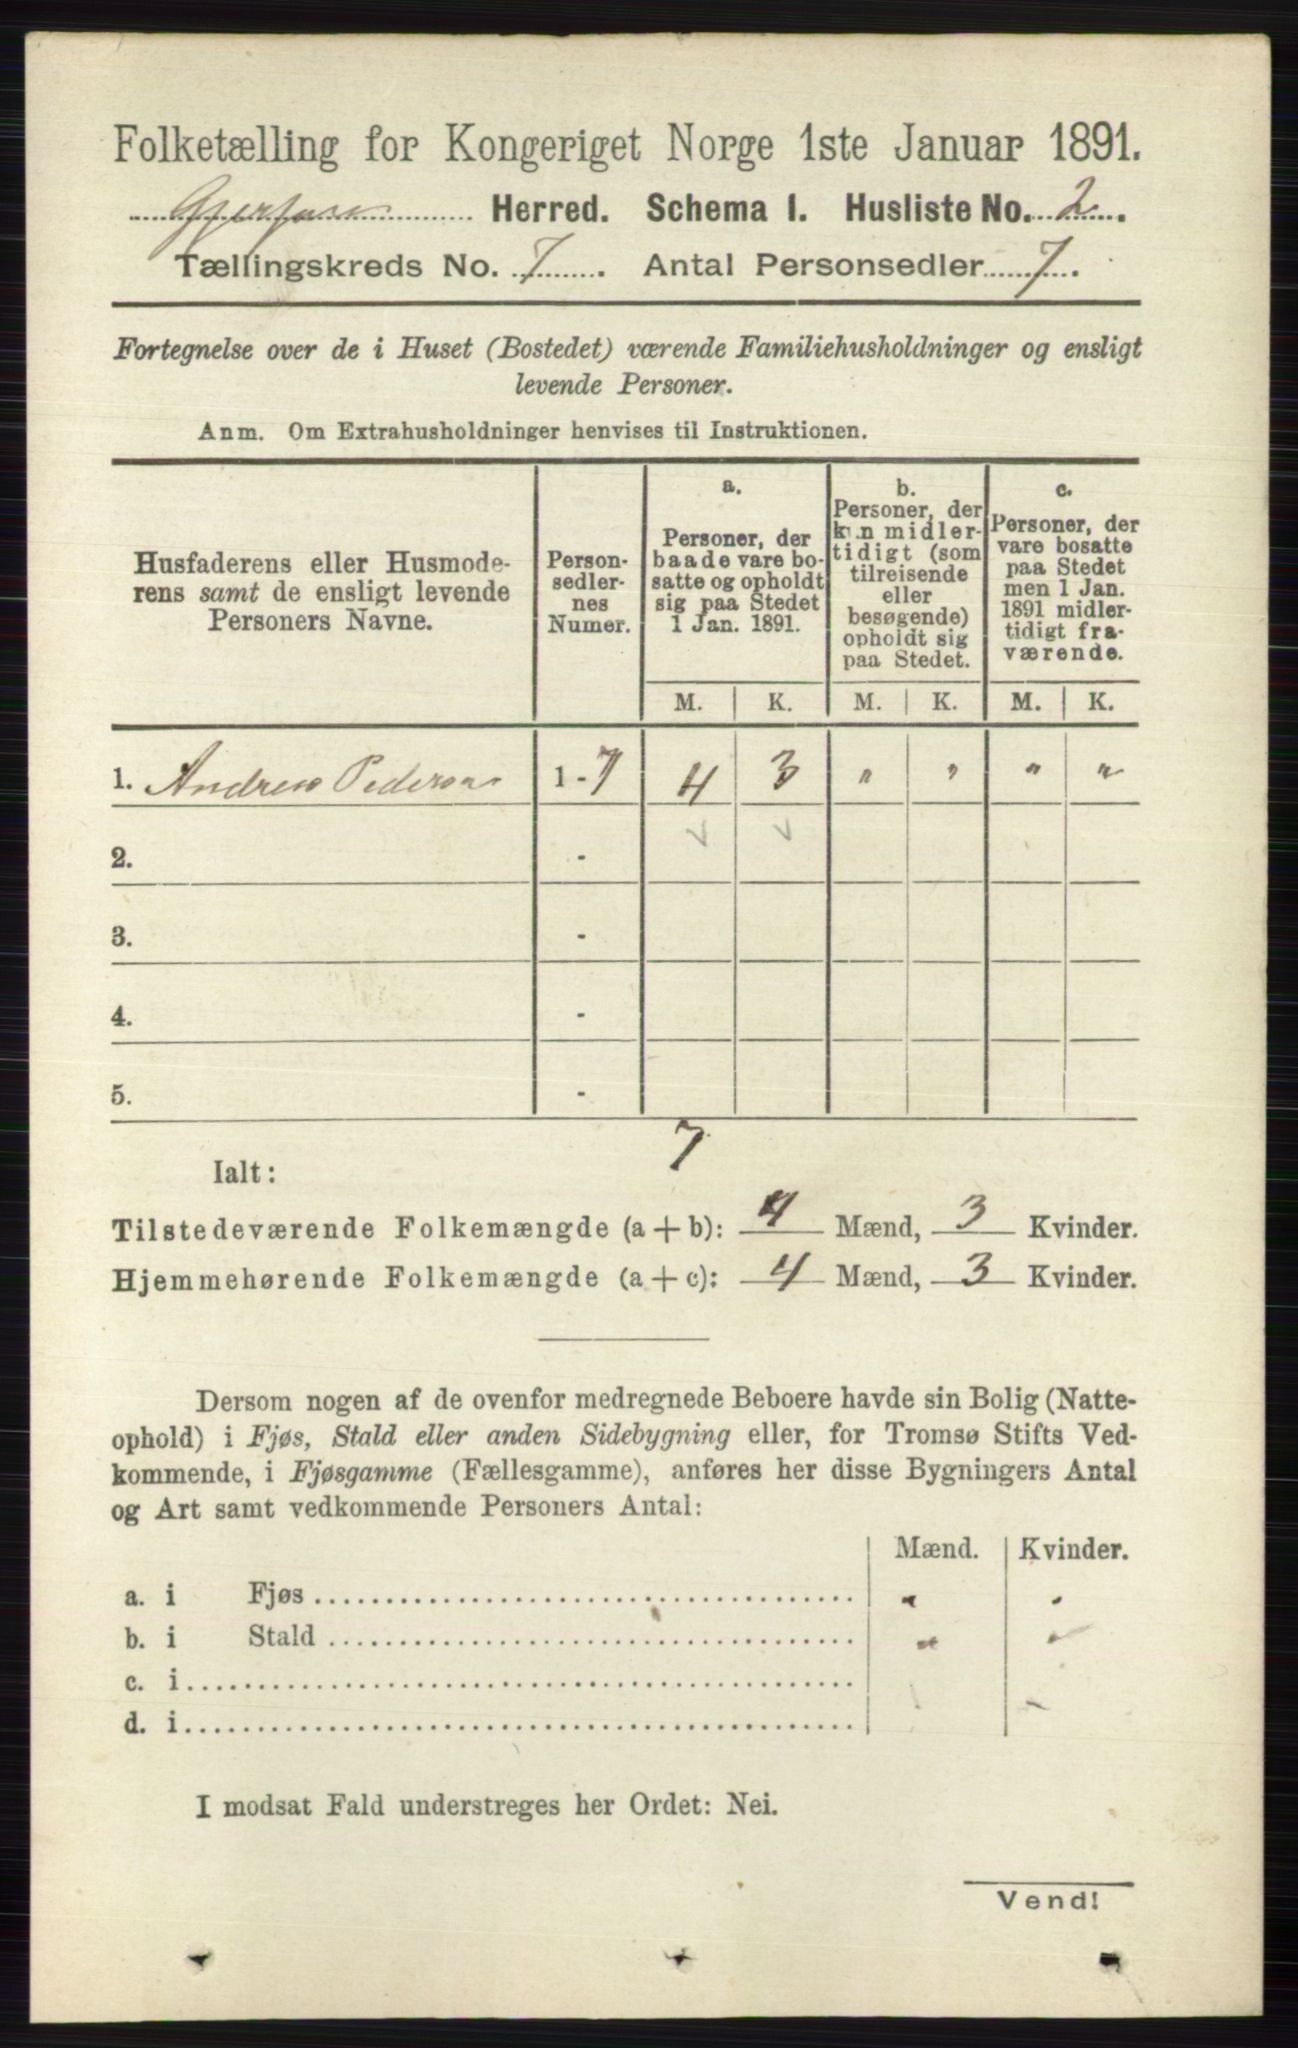 Folketælling for Kongeriget Norge 1ste Januar 1891.
Gjerpen Herred. Schema I. Husliste No. 2.
Tællingskreds No. 7. Antal Personsedler 7.
Fortegnelse over de i Huset (Bostedet) værende Familiehusholdninger og ensligt
levende Personer.
Anm. Om Extrahusholdninger henvises til Instruktionen.
Husfaderens eller Husmode-
rens samt de ensligt levende
Personers Navne.
Person-
sedler-
nes
Numer.
a.
Personer, der
baade vare bo-
satte og opholdt
sig paa Stedet
1 Jan. 1891.
b.
Personer, der
kun midler-
tidigt (som
tilreisende
eller
besøgende)
opholdt sig
paa Stedet.
c.
Personer, der
vare bosatte
paa Stedet
men 1 Jan.
1891 midler-
tidigt fra-
værende.
M. K. M. K. M. K.
1. Andreas Pederson 1 - 7 4 3 " " " "
2. -
3. -
4. -
5. -
7
Ialt:
Tilstedeværende Folkemængde (a + b): 4 Mænd, 3 Kvinder.
Hjemmehørende Folkemængde (a + c): 4 Mænd, 3 Kvinder.
Dersom nogen af de ovenfor medregnede Beboere havde sin Bolig (Natte-
ophold) i Fjøs, Stald eller anden Sidebygning eller, for Tromsø Stifts Ved-
kommende, i Fjøsgamme (Fællesgamme), anføres her disse Bygningers Antal
og Art samt vedkommende Personers Antal:
Mænd. Kvinder.
a. i Fjøs " "
b. i Stald " "
c. i
d. i
I modsat Fald understreges her Ordet: Nei.
Vend!